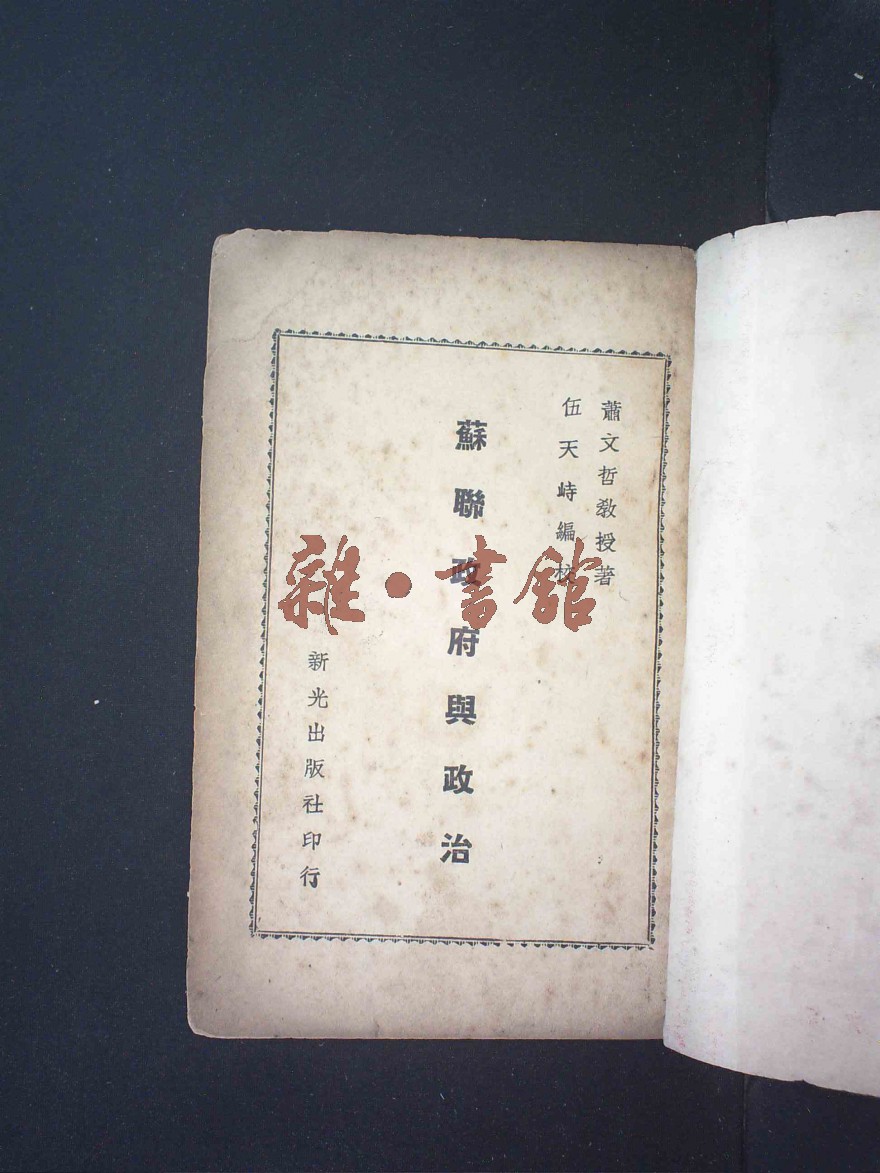 蕭文哲教授著
伍天峙編校
蘇聯政府與政治
新光出版社印行
雜·書館